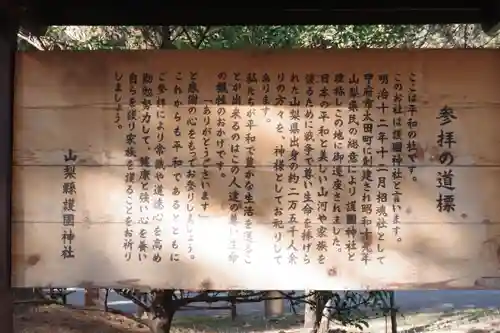 参拝の道標
ここは平和の社です。
このお社は護國神社と言います。
明治十二年十一月招魂社として
甲府市太田町に創建され昭和十九年
山梨県民の総意により護國神社と
改称しこの地に御遷座されました。
日本の平和と美しい山河や家族を
護るために戦争で尊い生命を捧げら
れた山梨県出身の約二万五千人余
りの方々を、神様としてお祀りして
あります。
私たちが平和で豊かな生活を送るこ
とが出来るのはこの人達の尊い生命
の犠牲のおかげです。
「ありがとうございます」
と感謝の心をもってお祭りしましょう。
これからも平和であるとともに
ご参拝により常識や道徳心を高め
勤勉努力して、健康と強い心を養い
自らを護り家族を護ることをお祈り
しましょう。
山梨縣護國神社